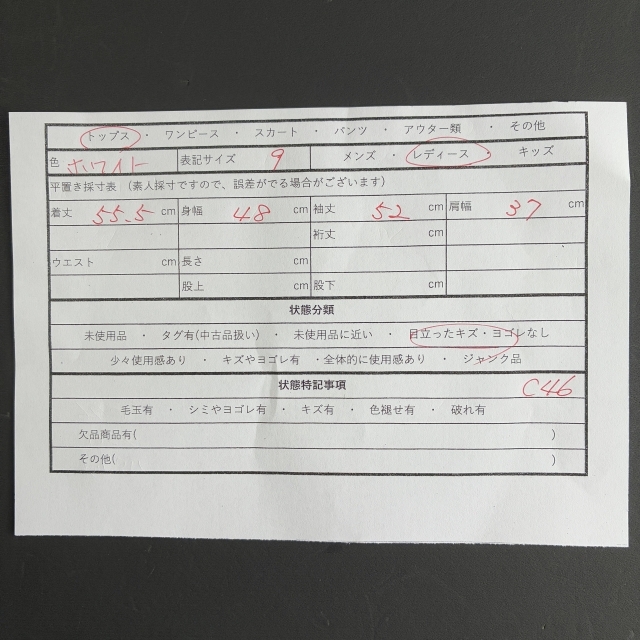 トップス ・ ワンピース ・ スカート ・ パンツ ・ アウター類 ・ その他
色 ホワイト 表記サイズ 9 メンズ ・ レディース ・ キッズ
平置き採寸表 (素人採寸ですので、誤差がでる場合がございます)
着丈 55.5 cm 身幅 48 cm 袖丈 52 cm 肩幅 37 cm
裄丈 cm
ウエスト cm 長さ cm
股上 cm 股下 cm
状態分類
未使用品 ・ タグ有(中古品扱い) ・ 未使用品に近い ・ 目立ったキズ・ヨゴレなし
少々使用感あり ・ キズやヨゴレ有 ・全体的に使用感あり ・ ジャンク品
状態特記事項 C46
毛玉有 ・ シミやヨゴレ有 ・ キズ有 ・ 色褪せ有 ・ 破れ有
欠品商品有( )
その他( )